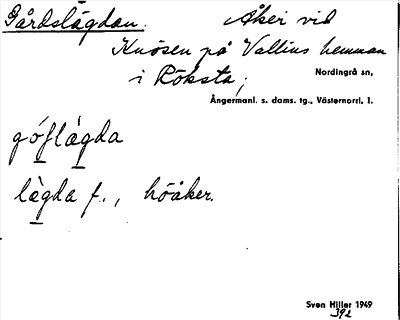 Gårdslägdan. Åker vid
Knösen på Vallins hemman
i Röksta;
Nordingrå sn,
Ångermanl. s. doms. tg., Västernorrl. l.
góflàgda
làgda f., höåker.
Sven Hiller 1949
392